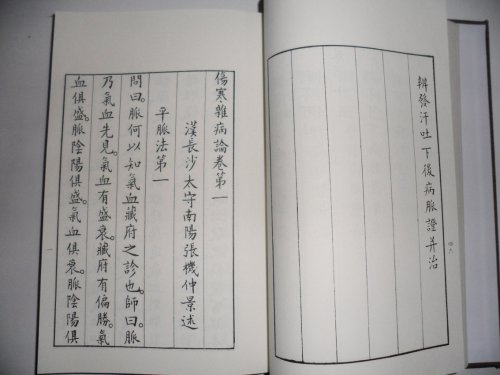 辨發汗吐下後病脈證并治
四八
傷寒雜病論卷第一
漢長沙太守南陽張機仲景述
平脈法第一
問曰。脈何以知氣血藏府之診也。師曰。脈
乃氣血先見。氣血有盛衰。藏府有偏勝。氣
血俱盛。脈陰陽俱盛。氣血俱衰。脈陰陽俱
一